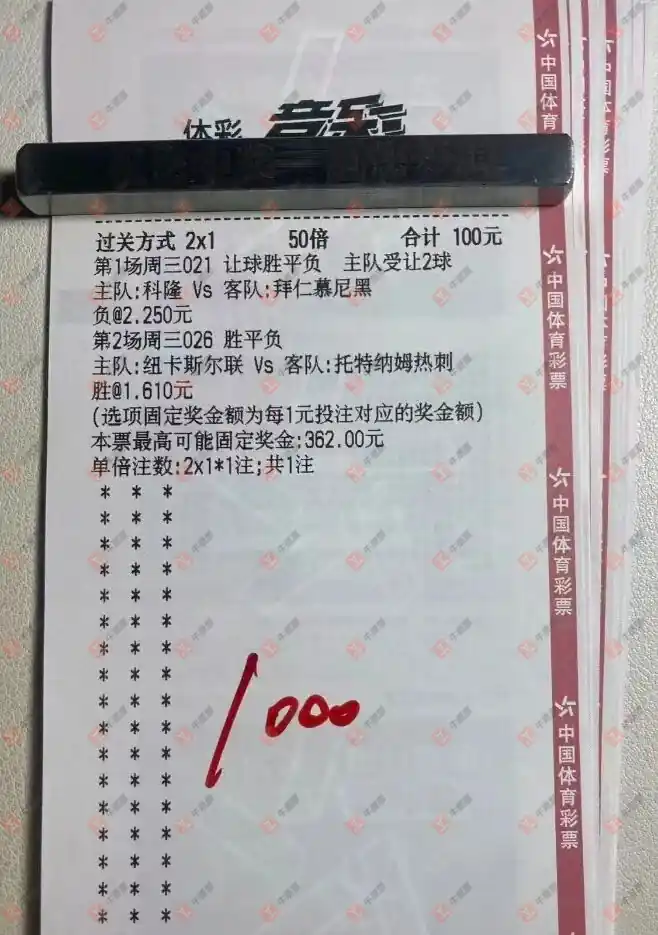 体彩 竞彩
过关方式 2x1 50倍 合计 100元
第1场周三021 让球胜平负 主队受让2球
主队:科隆 Vs 客队:拜仁慕尼黑
负@2.250元
第2场周三026 胜平负
主队:纽卡斯尔联 Vs 客队:托特纳姆热刺
胜@1.610元
(选项固定奖金额为每1元投注对应的奖金额)
本票最高可能固定奖金:362.00元
单倍注数:2x1*1注;共1注
* * *
* * *
* * *
* * *
* * *
* * *
* * *
* * *
* * *
* * *
* * *
* * *
* * *
* * *
* * *
* * *
* * *
/000
中国体育
中国体育彩票
中国体育彩票
中国体育彩票